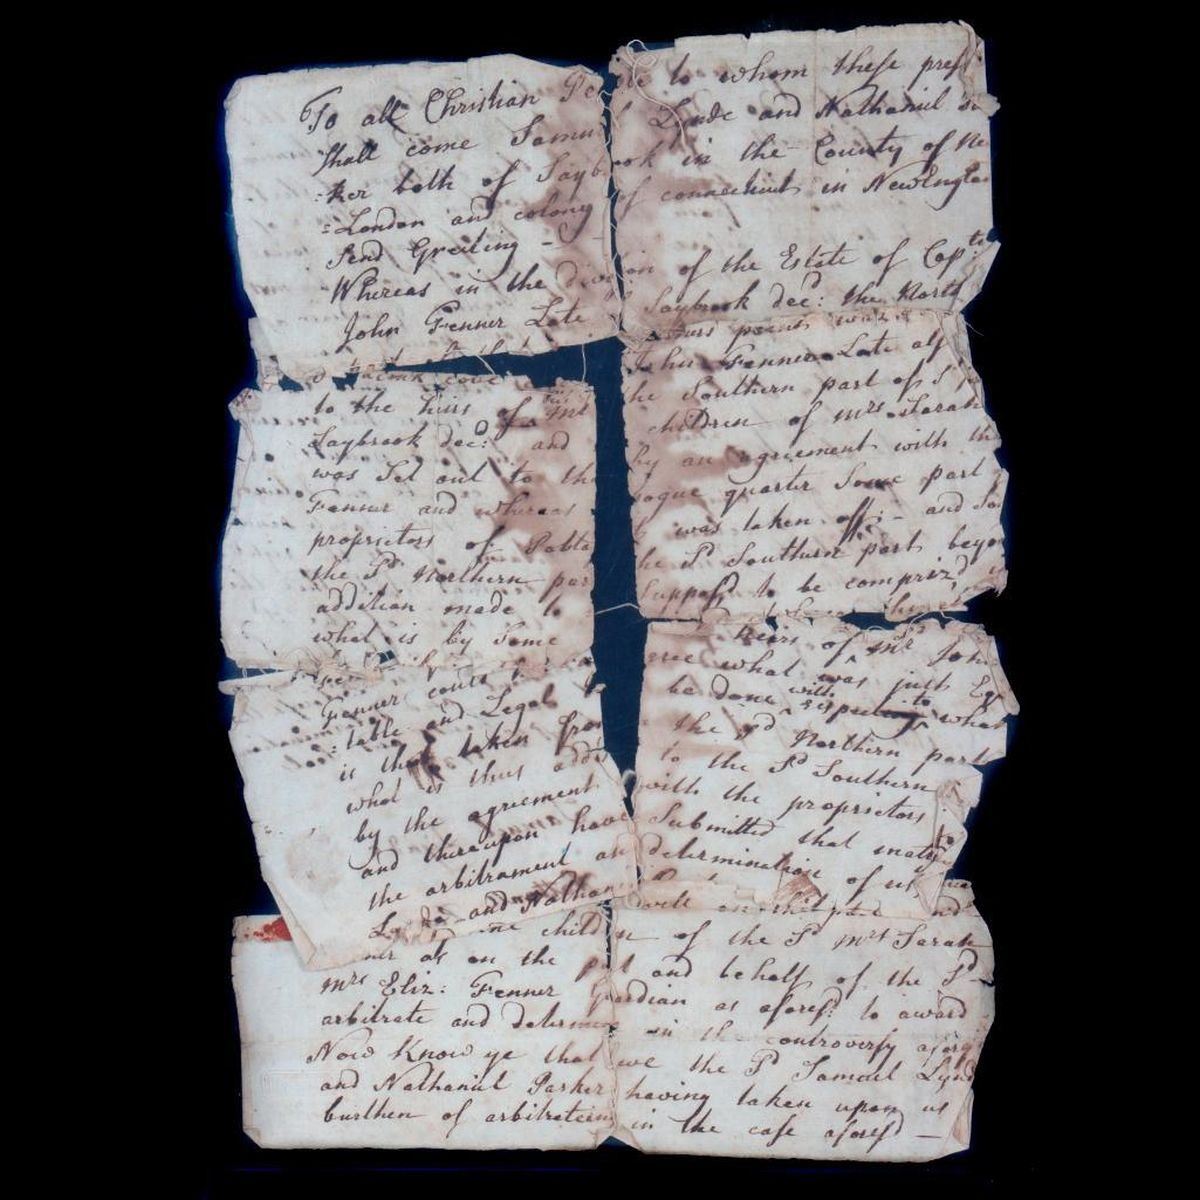 To all Christian People to whom these pres
shall come Samu Lynde and Nathaniel
=ker both of Saybrook in the County of Ne
=London and colony of connecticut in NewEnglan
Send Greeting –
Whereas in the division of the Estate of Capt:
John Fenner Late Saybrook decd: the North
part of that peins was
cove John Fenner Late
to the heirs of Mr the Southern part of
Saybrook decd: and children of Mrs Sarah
was Set out to the by an agreement with th
Fenner and whereas ogue quarter Some part
proprietors of Pabta was taken off: – and So
the Sd Northern par he Sd Southern part beyo
addition made to Suppos'd to be compriz'd
what is by Some
heirs of Mr Joh
Fenner cou ree what was just Eq
=table and Legal be done with respecting to what
is thus taken from the Sd Northern part
what is thus adde to the Sd Southern
by the agreement with the proprietors
and thereupon have Submitted that matter to
the arbitrament and determination of us
L and Nathan
the children of the Sd Mrs Sarah
ner as on the part and behalf of the Sd
Mrs Eliz: Fenner Guardian as aforesd to award
arbitrate and determine in the controversy afores
Now Know ye that we the Sd Samuel Lynd
and Nathaniel Parker having taken upon us
burthen of arbitrateing in the case aforesd –